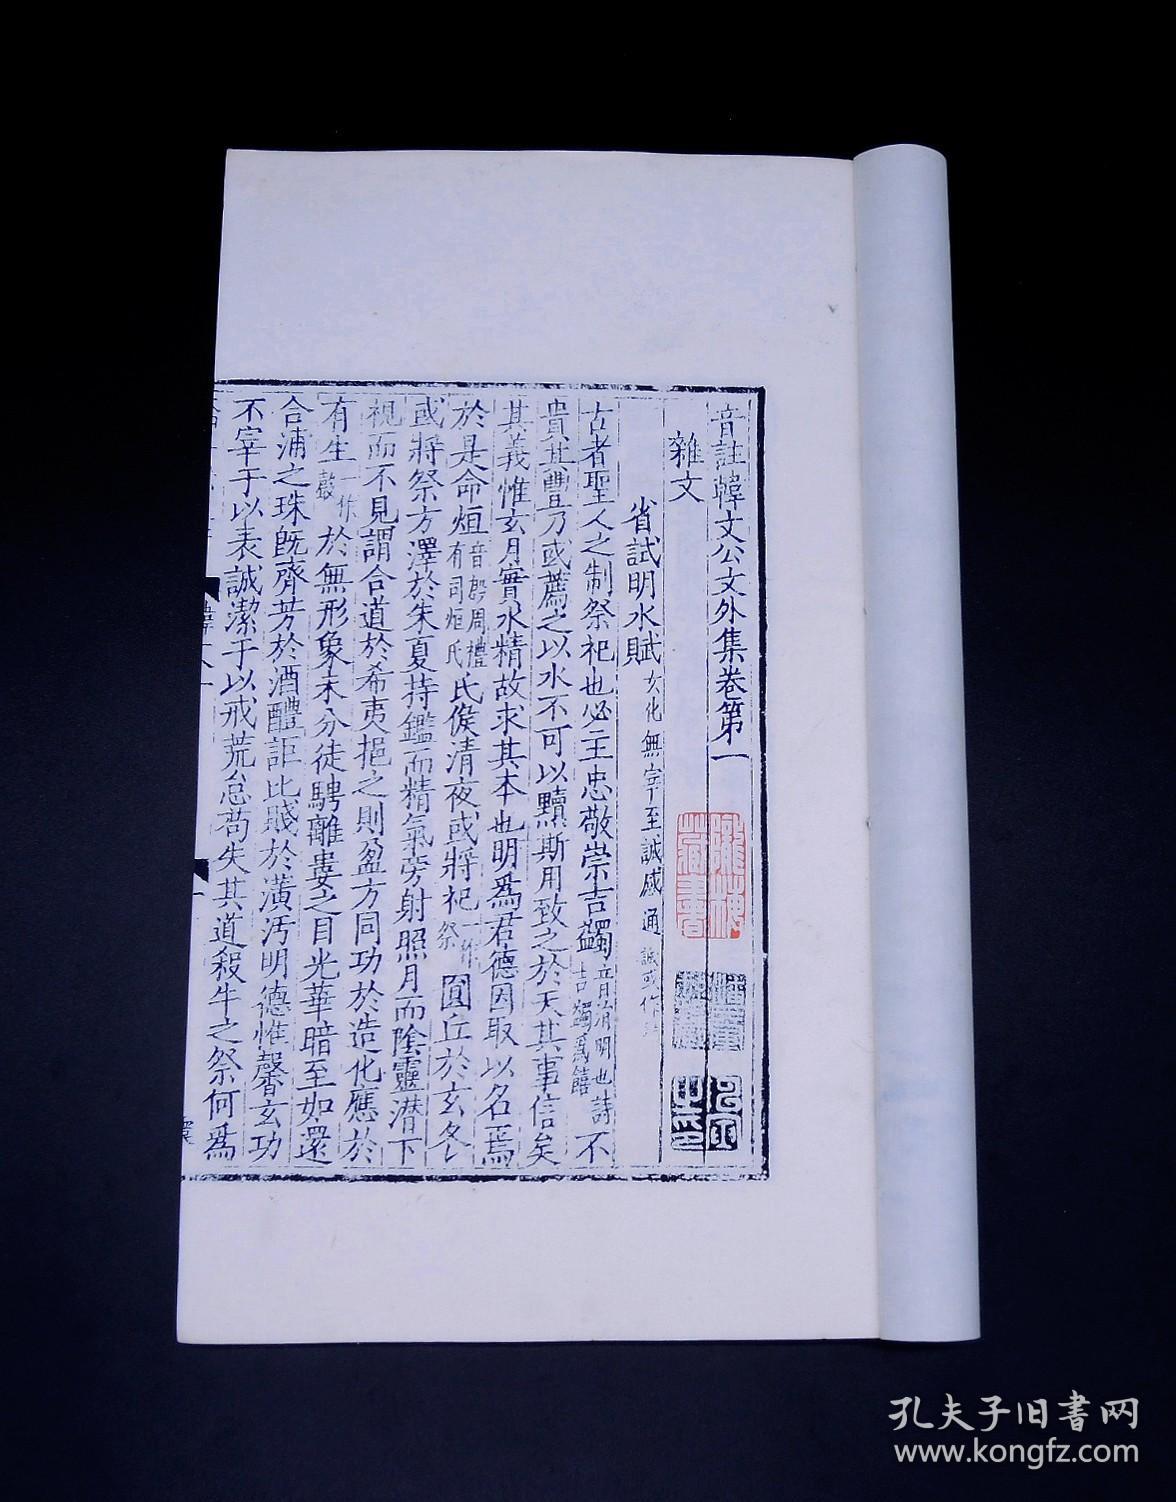 音註韓文公文外集卷第一
雜文
省試明水賦 玄化無宰至誠感通 誠或作
古者聖人之制祭祀也必主忠敬崇吉蠲 音涓明也詩吉蠲爲饎 不
貴其豐乃或薦之以水不可以黷斯用致之於天其事信矣
其義惟玄月實水精故求其本也明爲君德因取以名焉
於是命烜 音毀周禮有司烜氏 氏候清夜或將祀 一作祭 圓丘於玄冬
或將祭方澤於朱夏持鑑而精氣旁射照月而陰靈潛下
視而不見謂合道於希夷挹之則盈方同功於造化應於
有生 一作聲 於無形象未分徒騁離婁之目光華暗至如還
合浦之珠旣齊芳於酒醴詎比賤於潢汚明德惟馨玄功
不宰于以表誠潔于以戒荒怠苟失其道殺牛之祭何爲
孔夫子旧书网
www.kongfz.com